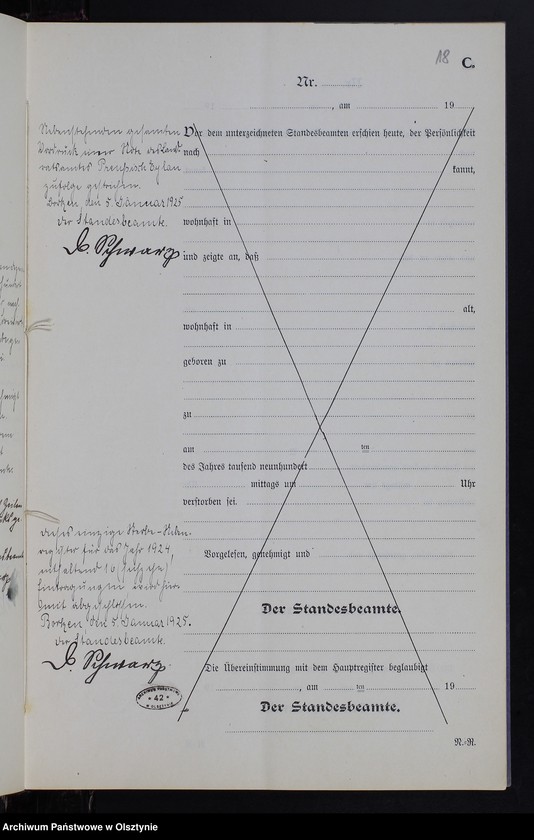 18
C.
Nr.
, am 19
Vor dem unterzeichneten Standesbeamten erschien heute, der Persönlichkeit
nach
kannt,
wohnhaft in
und zeigte an, daß
alt,
wohnhaft in
geboren zu
zu
am ten
des Jahres tausend neunhundert
mittags um Uhr
verstorben sei.
Vorgelesen, genehmigt und
Der Standesbeamte.
Die Übereinstimmung mit dem Hauptregister beglaubigt
, am ten 19
Der Standesbeamte.
N.-R.
Nebenstehenden gesamten
Vordruck einer Note des Land-
ratsamtes Preußisch Eylau
zufolge gestrichen.
den 5. Januar 1925
der Standesbeamte.
Schwarz
Dieses einzige Sterbe-Neben-
register für das Jahr 1924,
enthaltend 16 (sechzehn)
Eintragungen wird hier-
mit abgeschlossen.
den 5. Januar 1925.
der Standesbeamte.
Schwarz
ARCHIWUM PAŃSTWOWE
* 42 *
W OLSZTYNIE
Archiwum Państwowe w Olsztynie